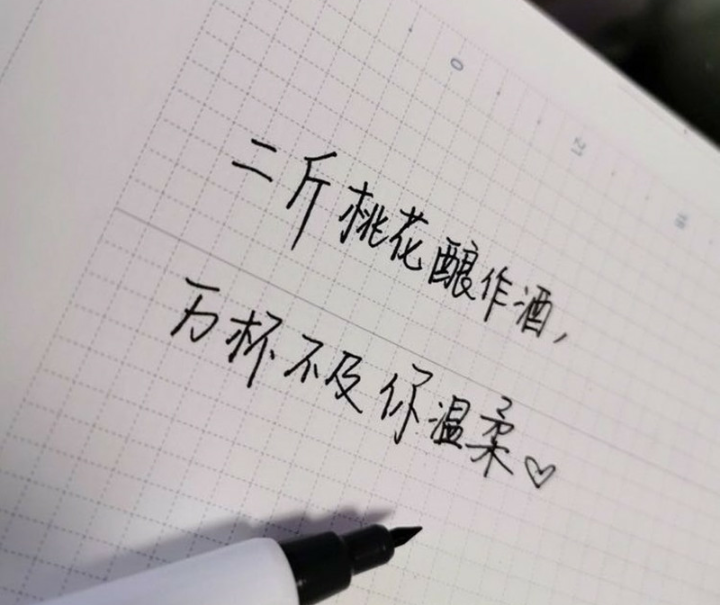 0
21
18
二斤桃花酿作酒，
万杯不及你温柔♡